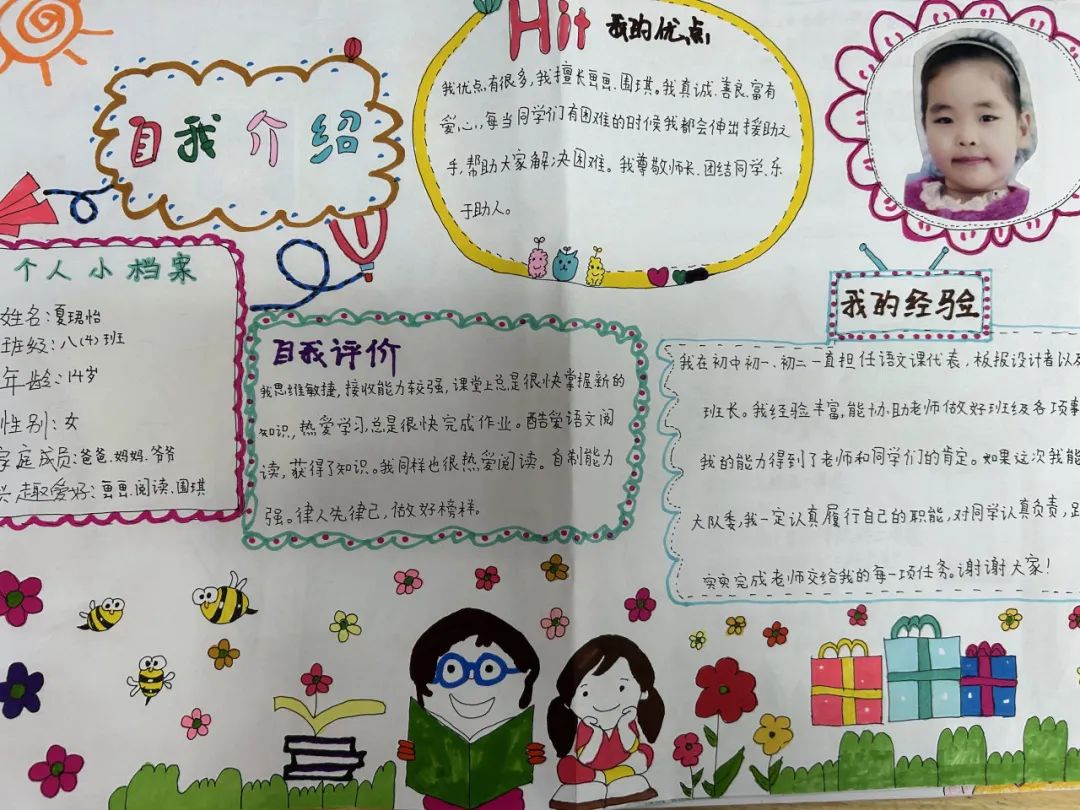 自我介绍
Hit 我的优点
我优点有很多,我擅长画画、围琪。我真诚、善良、富有
爱心,每当同学们有困难的时候我都会伸出援助之
手,帮助大家解决困难。我尊敬师长、团结同学、乐
于助人。
个人小档案
姓名:夏珺怡
班级:八(4)班
年龄:14岁
性别:女
家庭成员:爸爸、妈妈、爷爷
兴趣爱好:画画、阅读、围琪
自我评价
我思维敏捷,接收能力较强,课堂上总是很快掌握新的
知识,热爱学习,总是很快完成作业。酷爱语文阅
读,获得了知识。我同样也很热爱阅读。自制能力
强。律人先律己,做好榜样。
我的经验
我在初中初一、初二一直担任语文课代表,板报设计者以及
班长。我经验丰富,能协助老师做好班级各项事
我的能力得到了老师和同学们的肯定。如果这次我能
大队委,我一定认真履行自己的职能,对同学认真负责,
实实完成老师交给我的每一项任务。谢谢大家!